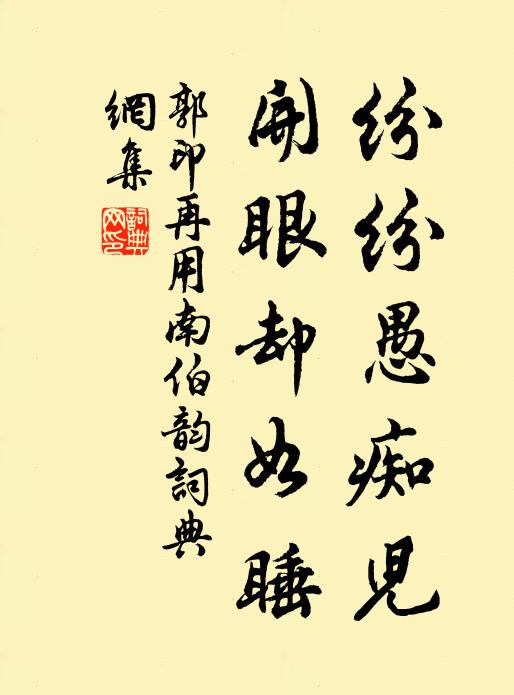 纷纷愚痴兒
開眼却如睡
郭印再用南伯韵詞典
網集
詞典
网印